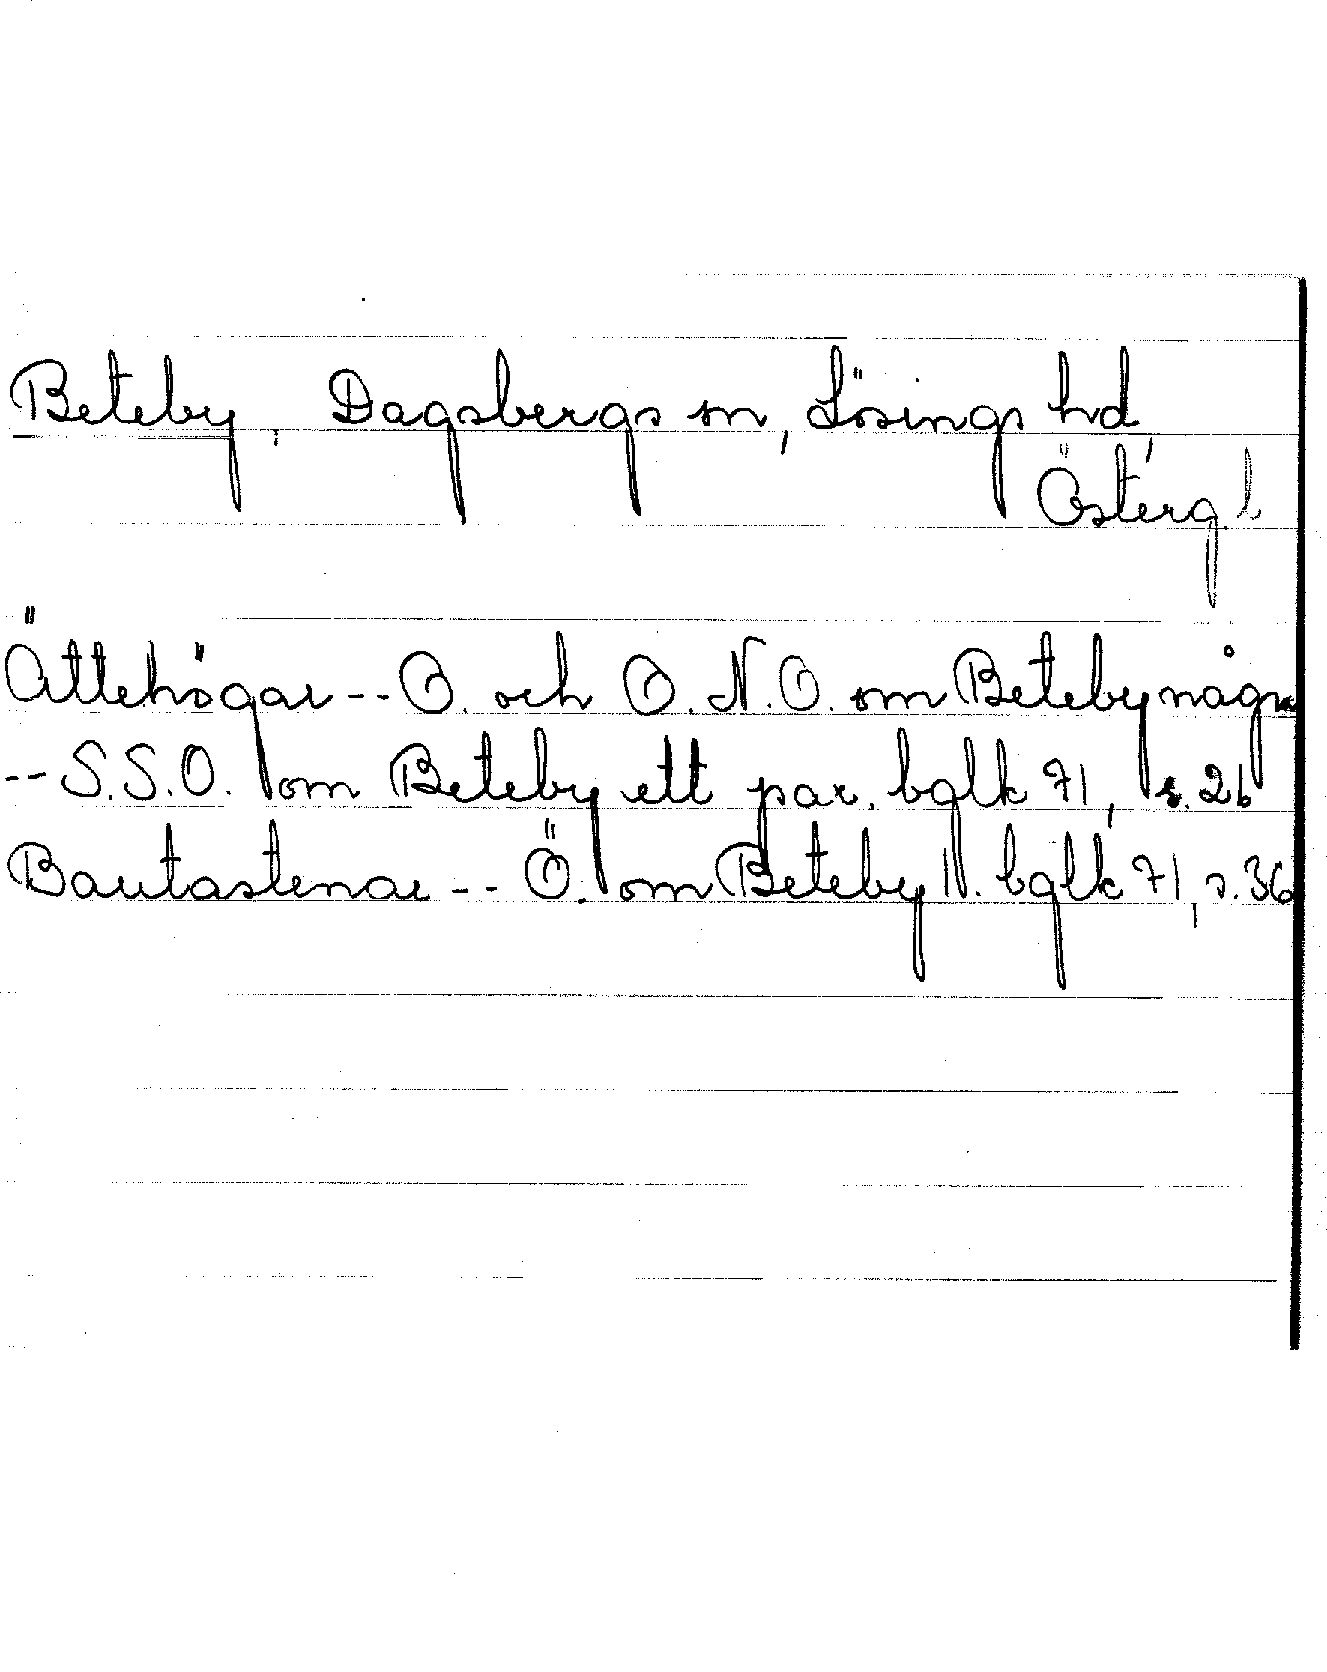 Beteby, Dagsbergs sn, Lösings hd,
Österg. l
Ättehögar -- O. och O.N.O. om Beteby några
-- S.S.O. om Beteby ett par. bglk 71, s. 26
Bautastenar -- Ö. om Beteby 11. bglk 71, s. 36